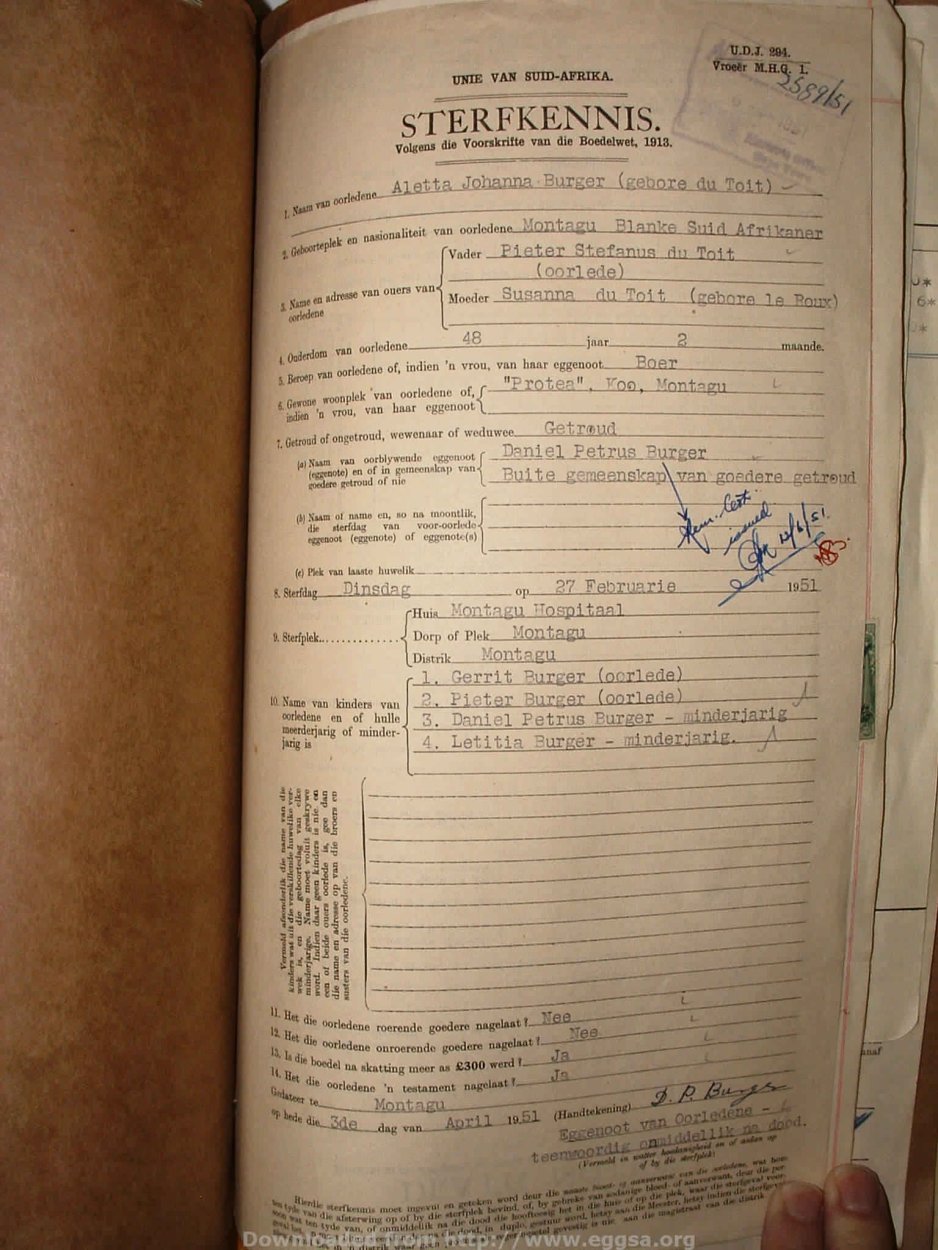 U.D.J. 294.
Vroeër M.H.G. 1.
2589/51
UNIE VAN SUID-AFRIKA.
STERFKENNIS.
Volgens die Voorskrifte van die Boedelwet, 1913.
1. Naam van oorledene Aletta Johanna Burger (gebore du Toit)
2. Geboorteplek en nasionaliteit van oorledene Montagu Blanke Suid Afrikaner
3. Name en adresse van ouers van oorledene
Vader Pieter Stefanus du Toit
(oorlede)
Moeder Susanna du Toit (gebore le Roux)
4. Ouderdom van oorledene 48 jaar 2 maande.
5. Beroep van oorledene of, indien 'n vrou, van haar eggenoot Boer
6. Gewone woonplek van oorledene of, indien 'n vrou, van haar eggenoot
"Protea", Koo, Montagu
7. Getroud of ongetroud, wewenaar of weduwee Getroud
(a) Naam van oorblywende eggenoot (eggenote) en of in gemeenskap van goedere getroud of nie
Daniel Petrus Burger
Buite gemeenskap van goedere getroud
(b) Naam of name en, so na moontlik, die sterfdag van voor-oorlede eggenoot (eggenote) of eggenote(s)
issued
12/6/51.
(c) Plek van laaste huwelik
8. Sterfdag Dinsdag op 27 Februarie 1951
9. Sterfplek
Huis Montagu Hospitaal
Dorp of Plek Montagu
Distrik Montagu
10. Name van kinders van oorledene en of hulle meerderjarig of minderjarig is
1. Gerrit Burger (oorlede)
2. Pieter Burger (oorlede)
3. Daniel Petrus Burger - minderjarig
4. Letitia Burger - minderjarig.
Vermeld afsonderlik die name van die
kinders wat uit die verskillende huwelike verwek
is, en die geboortedag van elke
minderjarige. Name moet voluit geskrywe
word. Indien daar geen kinders is nie, en
een of beide ouers oorlede is, gee dan
die name en adresse op van die broers en
susters van die oorledene.
11. Het die oorledene roerende goedere nagelaat? Nee
12. Het die oorledene onroerende goedere nagelaat? Nee
13. Is die boedel na skatting meer as £300 werd? Ja
14. Het die oorledene 'n testament nagelaat? Ja
Gedateer te Montagu
op hede die 3de dag van April 1951 (Handtekening) D. P. Burger
Eggenoot van Oorledene -
teenwoordig onmiddellik na dood.
(Vermeld in watter hoedanigheid en of anders op
of by die sterfplek)
Hierdie sterfkennis moet ingevul en geteken word deur die naaste
Downloaded from http://www.eggsa.org